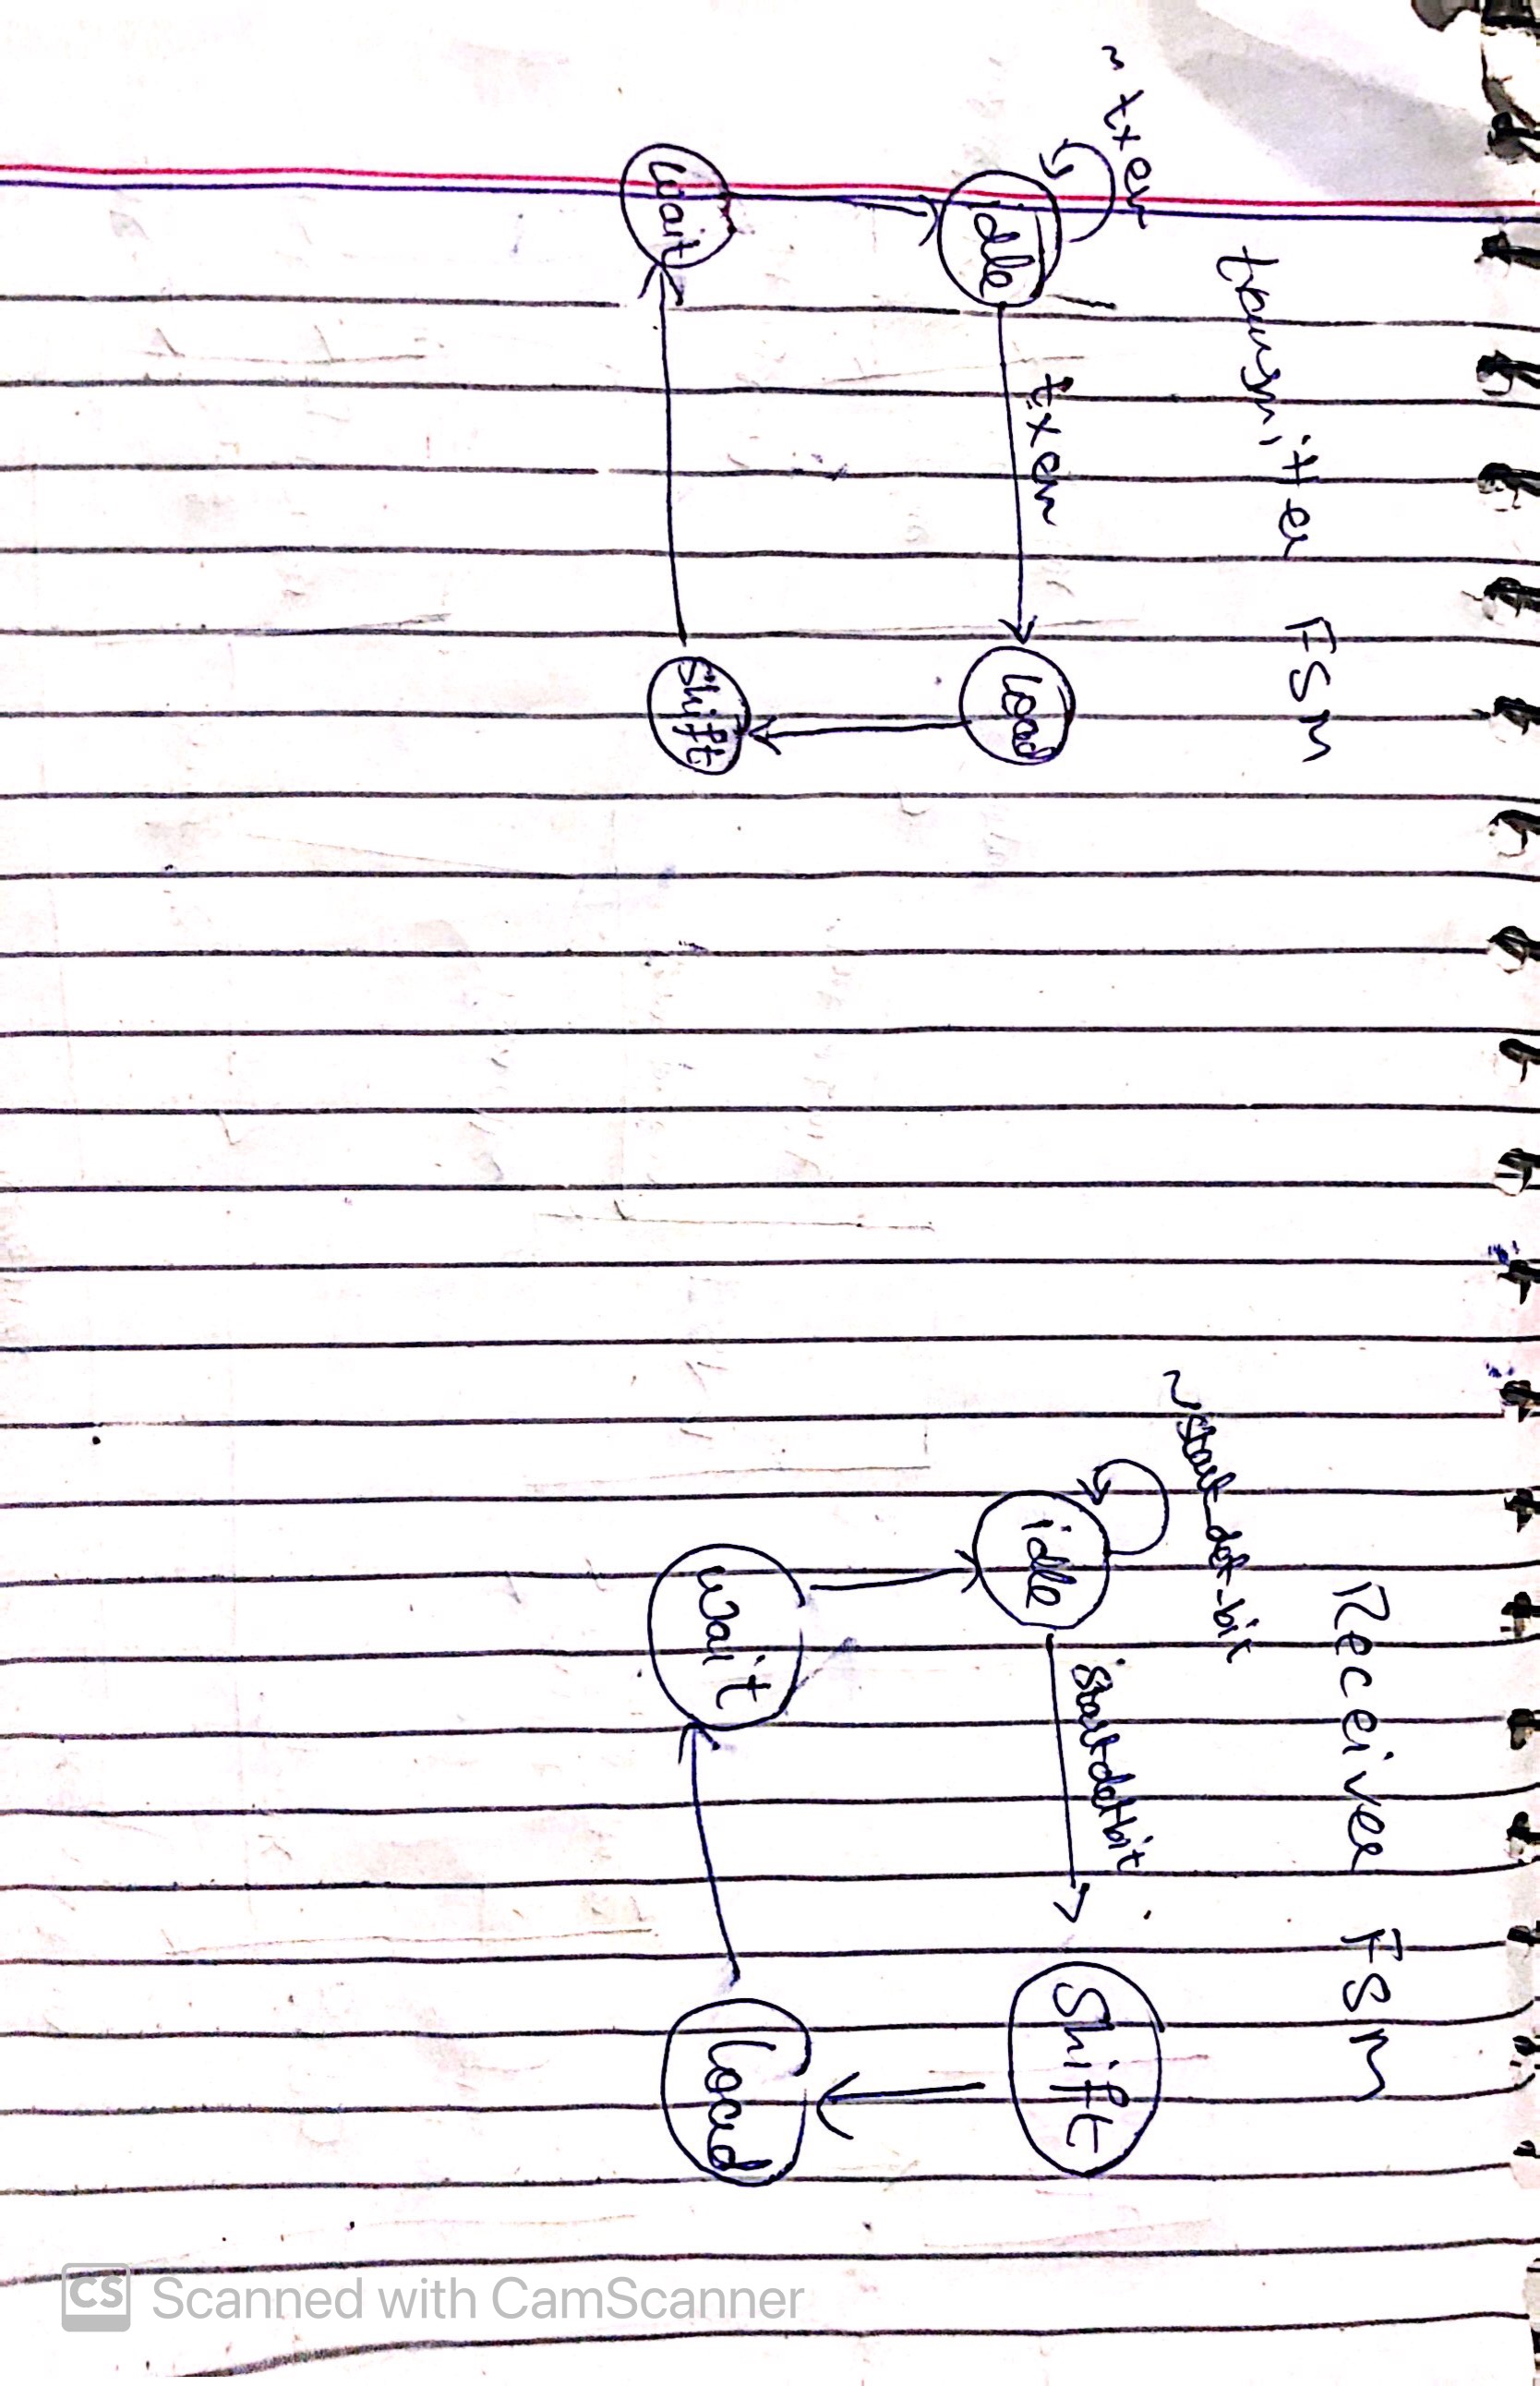 transmitter FSM
~txen
txen
idle
Load
wait
shift
Receiver FSM
~start_det_bit
start det bit
idle
Shift
wait
load
CS Scanned with CamScanner